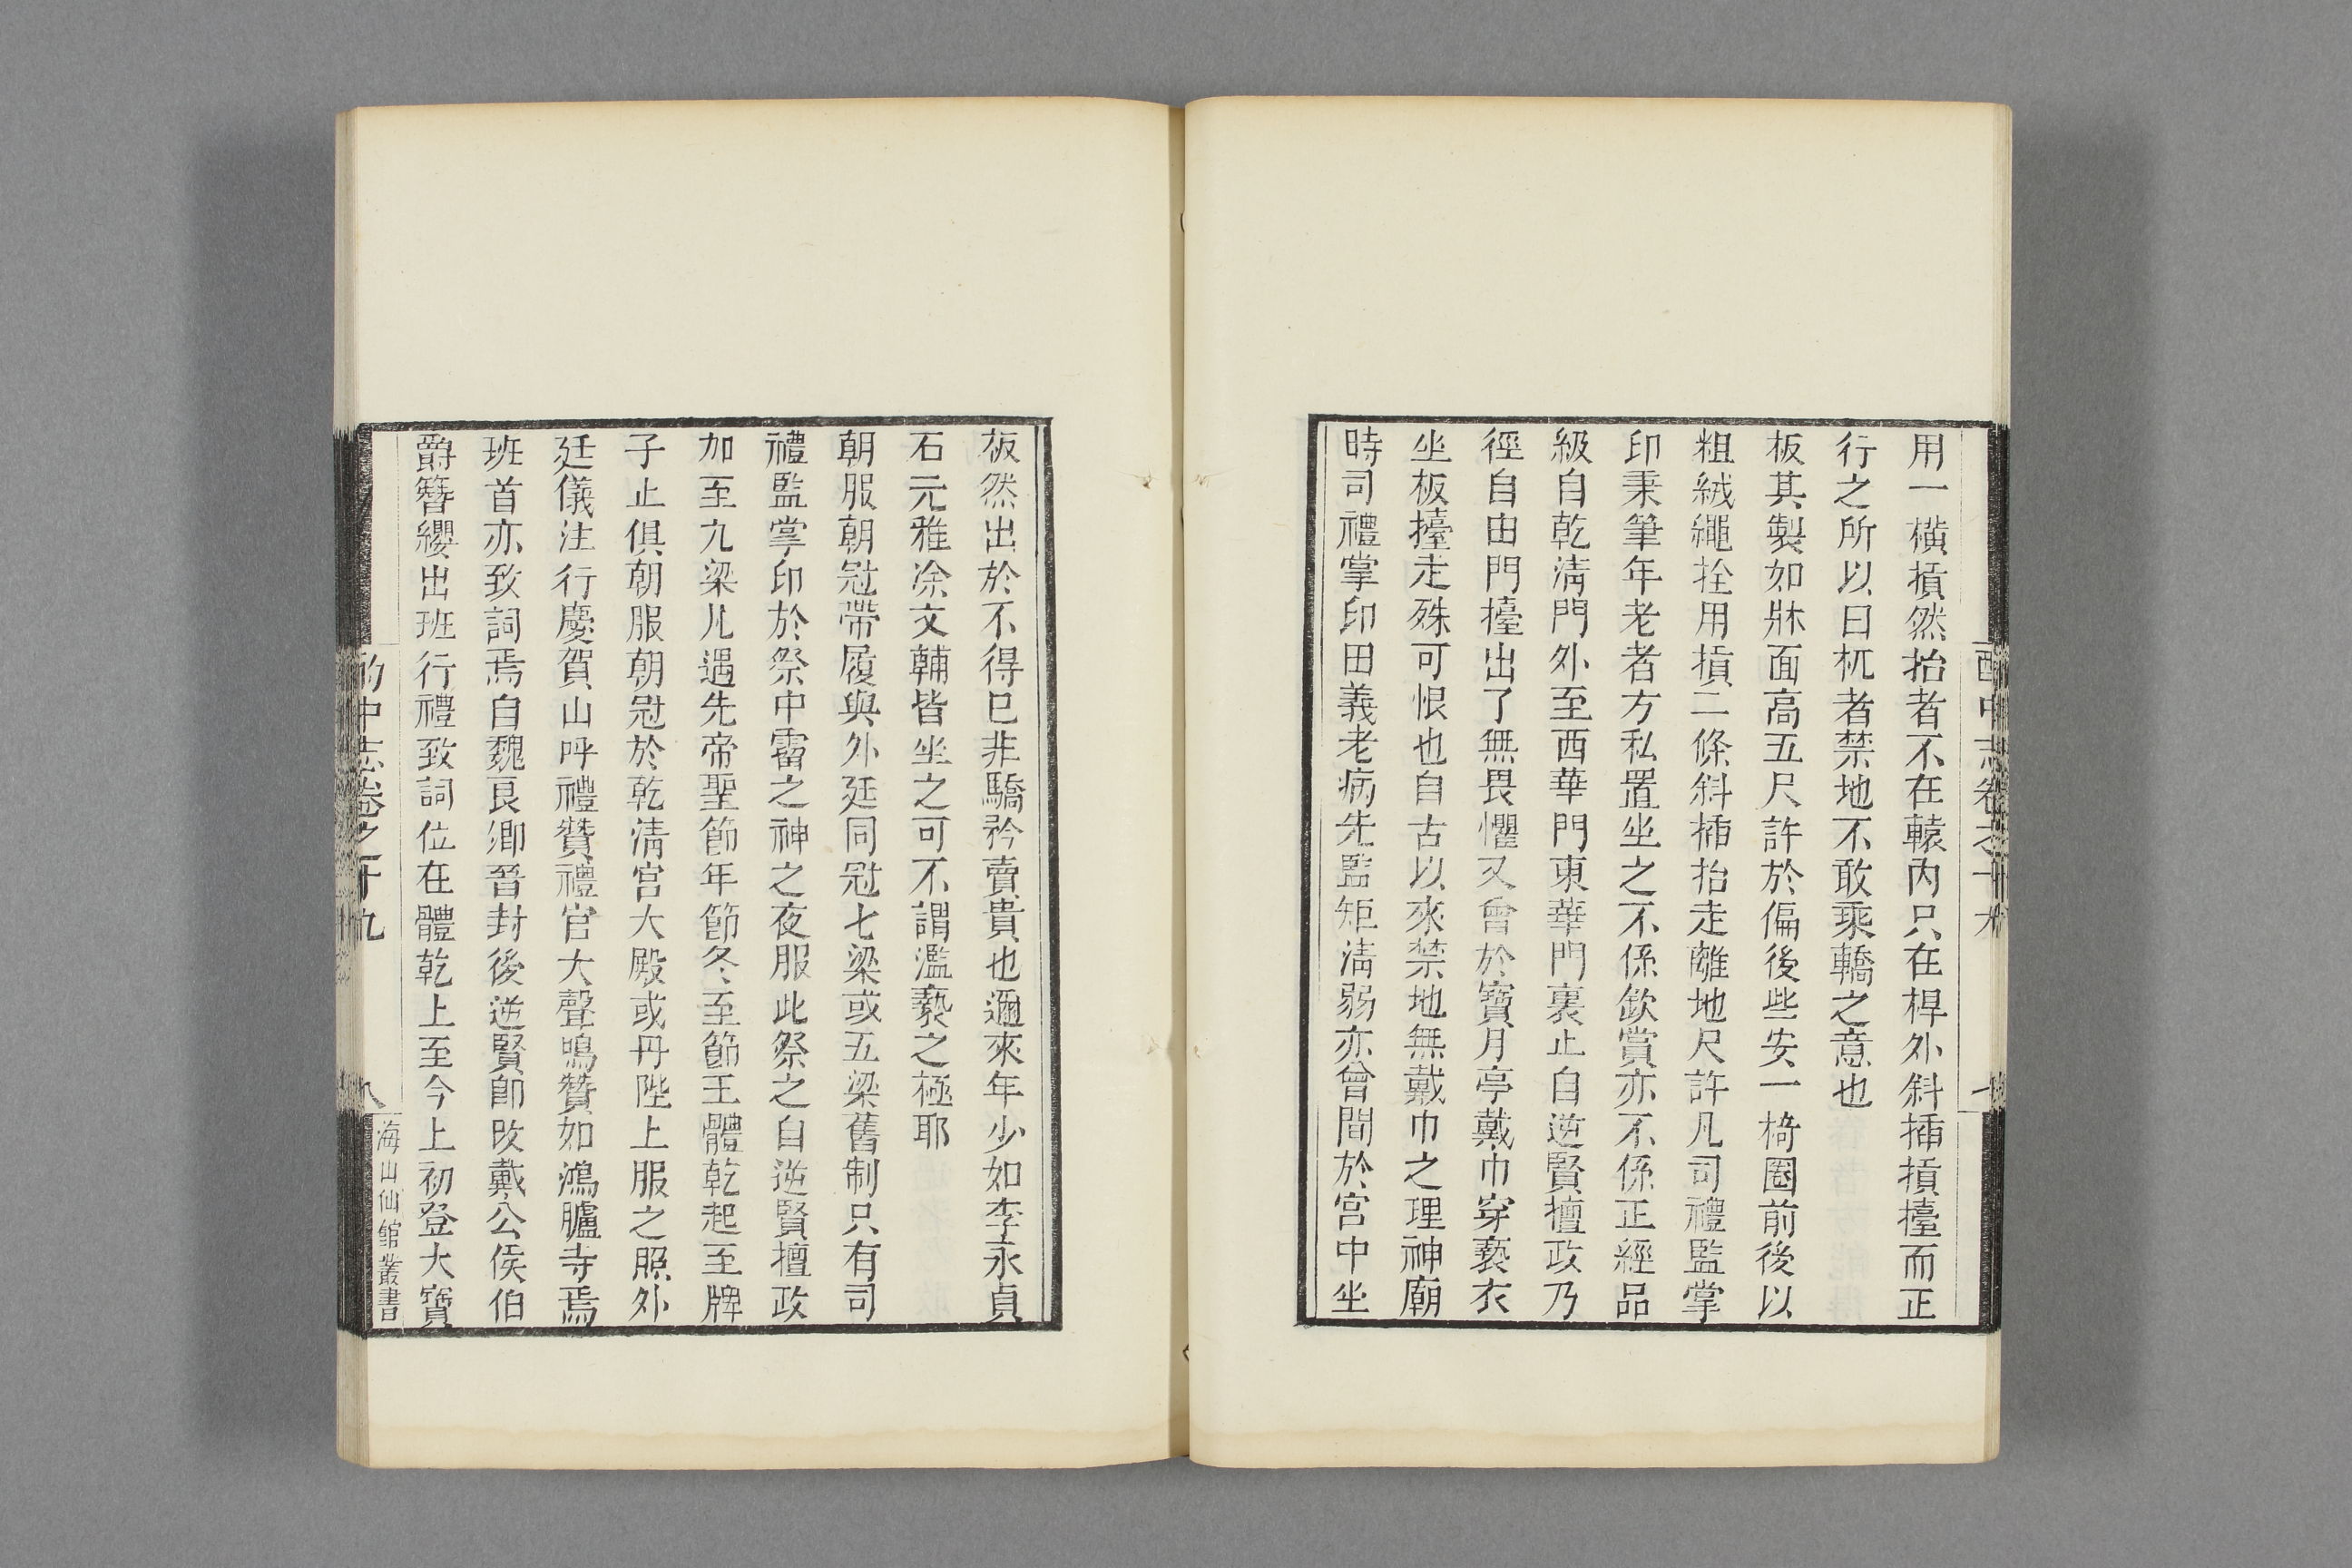 用一橫損然抬者不在轅內只在桿外斜揷損擡而正
行之所以曰杌者禁地不敢乘轎之意也
板其製如牀面高五尺許於偏後些安一椅圈前後以
粗絨繩拴用損二條斜揷抬走離地尺許凡司禮監掌
印秉筆年老者方私置坐之不係欽賞亦不係正經品
級自乾淸門外至西華門東華門裏止自逆賢擅政乃
徑自由門擡出了無畏懼又會於寶月亭戴巾穿褻衣
坐板擡走殊可恨也自古以來禁地無戴巾之理神廟
時司禮掌印田義老病先監矩淸弱亦曾間於宮中坐
板然出於不得已非驕矜賣貴也邇來年少如李永貞
石元雅凃文輔皆坐之可不謂濫褻之極耶
朝服朝冠帶履與外廷同冠七梁或五梁舊制只有司
禮監掌印於祭中霤之神之夜服此祭之自逆賢擅政
加至九梁凡遇先帝聖節年節冬至節王體乾起至牌
子止俱朝服朝冠於乾淸宮大殿或丹陛上服之照外
廷儀注行慶賀山呼禮贊禮官大聲鳴贊如鴻臚寺焉
班首亦致詞焉自魏良卿晉封後逆賢卽改戴公侯伯
爵簪纓出班行禮致詞位在體乾上至今上初登大寶
酌中志卷之十九
八
海山仙館叢書